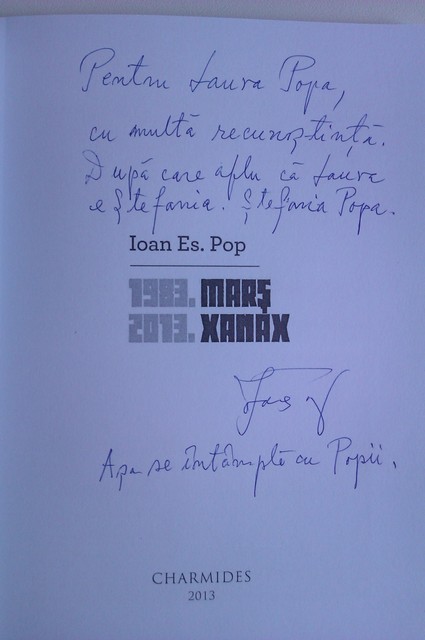 Pentru Laura Popa,
cu multă recunoștință.
După care aflu că Laura
e Ștefania. Ștefania Popa.
Ioan Es. Pop
1983. MARȘ
2013. XANAX
Așa se întâmplă cu Popii.
CHARMIDES
2013